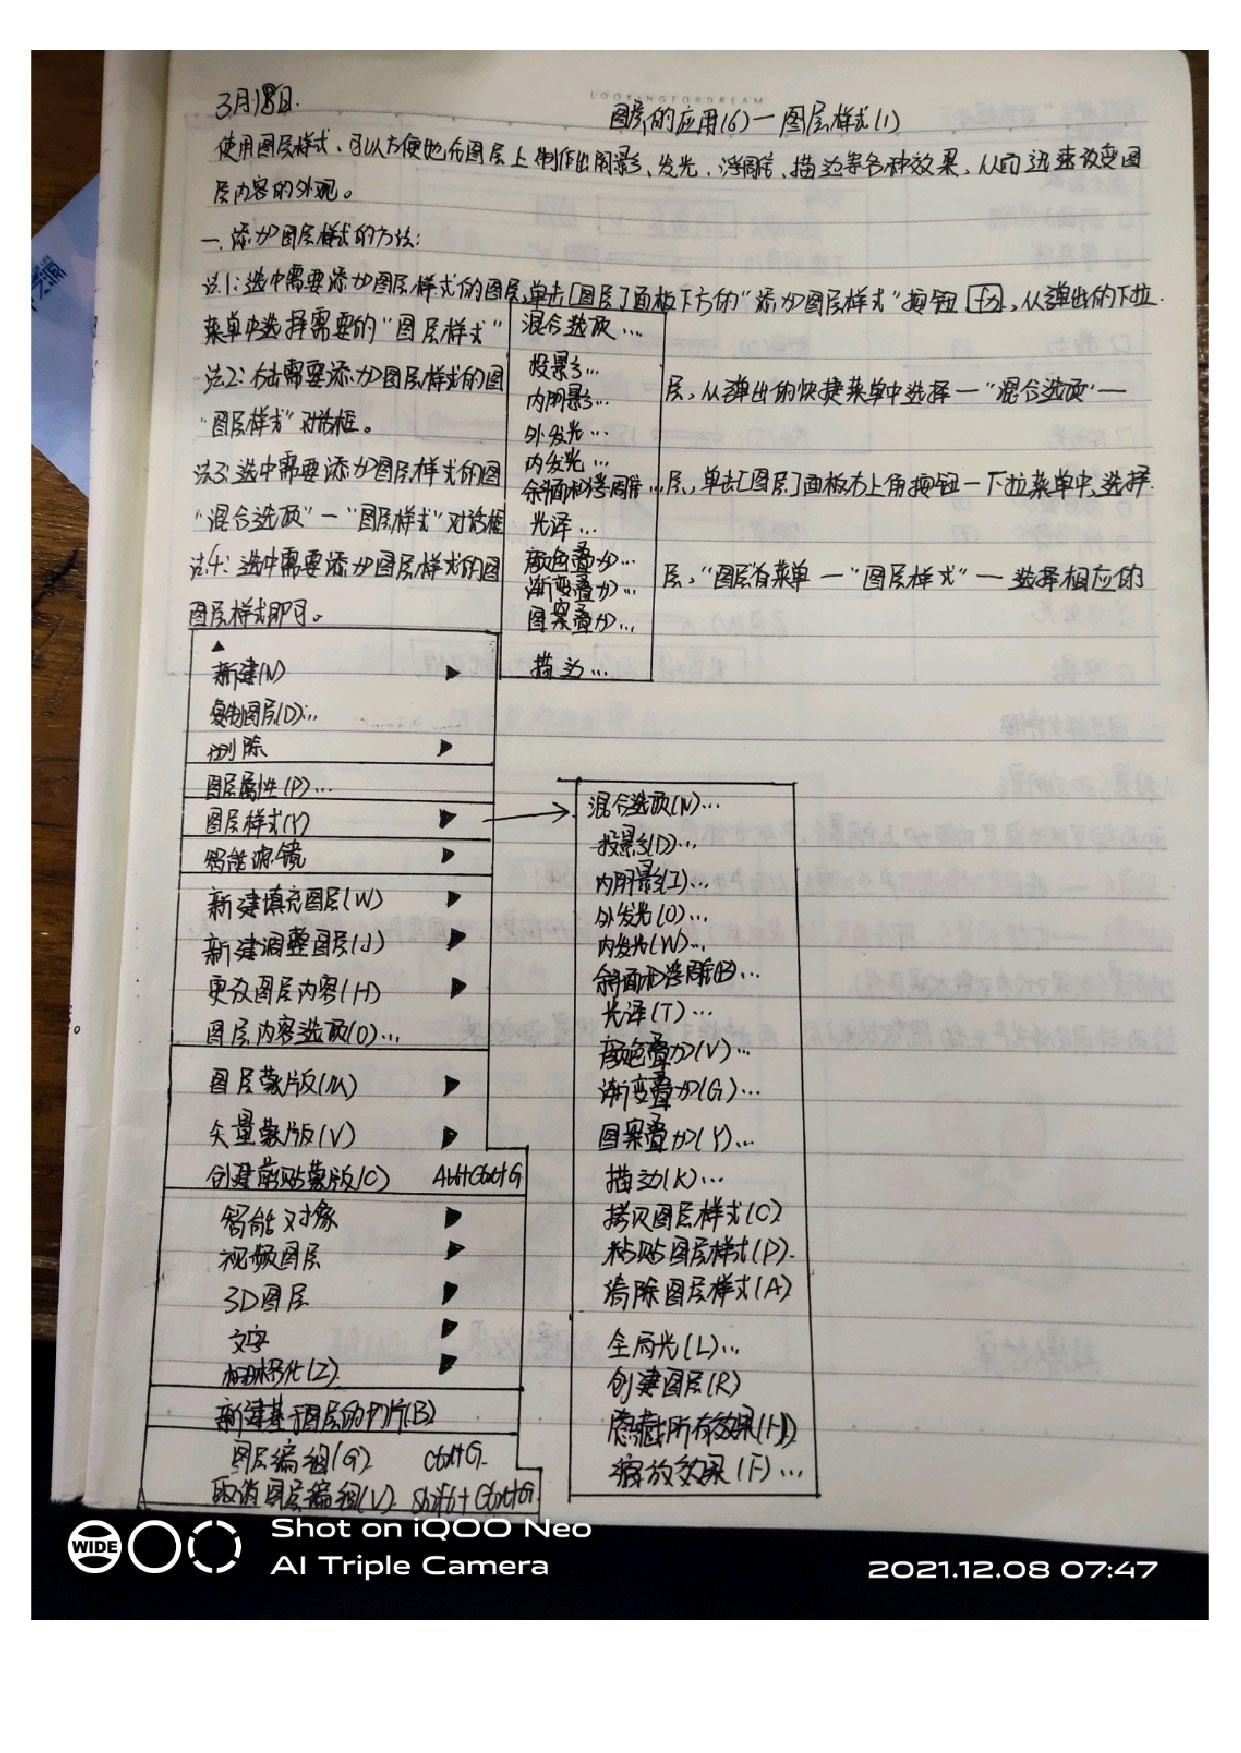 LOOKINGFORDREAM
3月18日.
图层的应用(6)一图层样式(1)
使用图层样式、可以方便地在图层上制作出阴影、发光、浮雕、描边等各种效果，从而迅速改变图
层内容的外观。
一、添加图层样式的方法：
法1:选中需要添加图层样式的图层,单击[图层]面板下方的"添加图层样式"按钮 fx，从弹出的下拉
菜单中选择需要的"图层样式"
混合选项...
投影...
内阴影...
外发光...
内发光...
斜面和浮雕...
光泽...
颜色叠加...
渐变叠加...
图案叠加...
描边...
法2:右击需要添加图层样式的图层，从弹出的快捷菜单中选择一"混合选项"一
"图层样式"对话框。
法3:选中需要添加图层样式的图层，单击[图层]面板右上角按钮一下拉菜单中选择
"混合选项"一"图层样式"对话框
法4:选中需要添加图层样式的图层，"图层"菜单一"图层样式"一选择相应的
图层样式即可。
新建(N)
复制图层(D)...
删除
图层属性(P)...
图层样式(Y)
智能滤镜
新建填充图层(W)
新建调整图层(J)
更改图层内容(H)
图层内容选项(O)...
图层蒙版(M)
矢量蒙版(V)
创建剪贴蒙版(C) Alt+Ctrl+G
智能对象
视频图层
3D图层
文字
栅格化(Z)
新建基于图层的切片(B)
图层编组(G) Ctrl+G
取消图层编组(V) Shift+Ctrl+G
混合选项(N)...
投影(D)...
内阴影(I)...
外发光(O)...
内发光(W)...
斜面和浮雕(B)...
光泽(T)...
颜色叠加(V)...
渐变叠加(G)...
图案叠加(Y)...
描边(K)...
拷贝图层样式(C)
粘贴图层样式(P).
清除图层样式(A)
全局光(L)...
创建图层(R)
隐藏所有效果(H)
缩放效果(F)...
WIDE
Shot on iQOO Neo
AI Triple Camera
2021.12.08 07:47